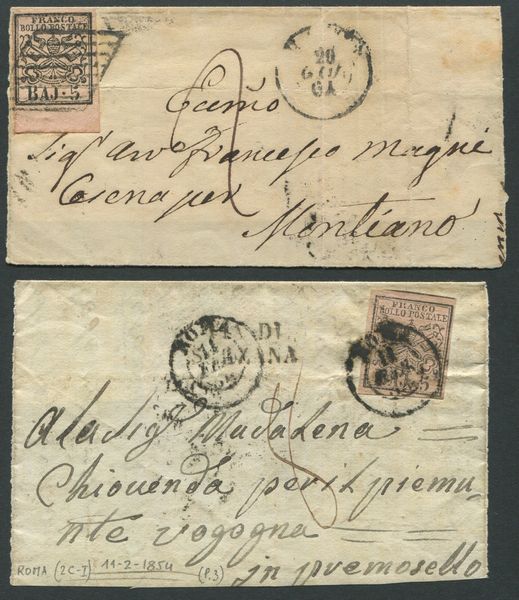 FRANCO
BOLLO POSTALE
BAJ·5
20
GIU
64
Sigr Avv Francesco Magné
Cesena per
Montiano
FRANCO
BOLLO POSTALE
BAJ·5
ROMA
11
FEB
ROMA
14
FEB
DI
ala Sig Madalena
Chiovenda per il piemu-
nte vogogna
in premosello
ROMA (2C-I) 11-2-1854 (P.3)